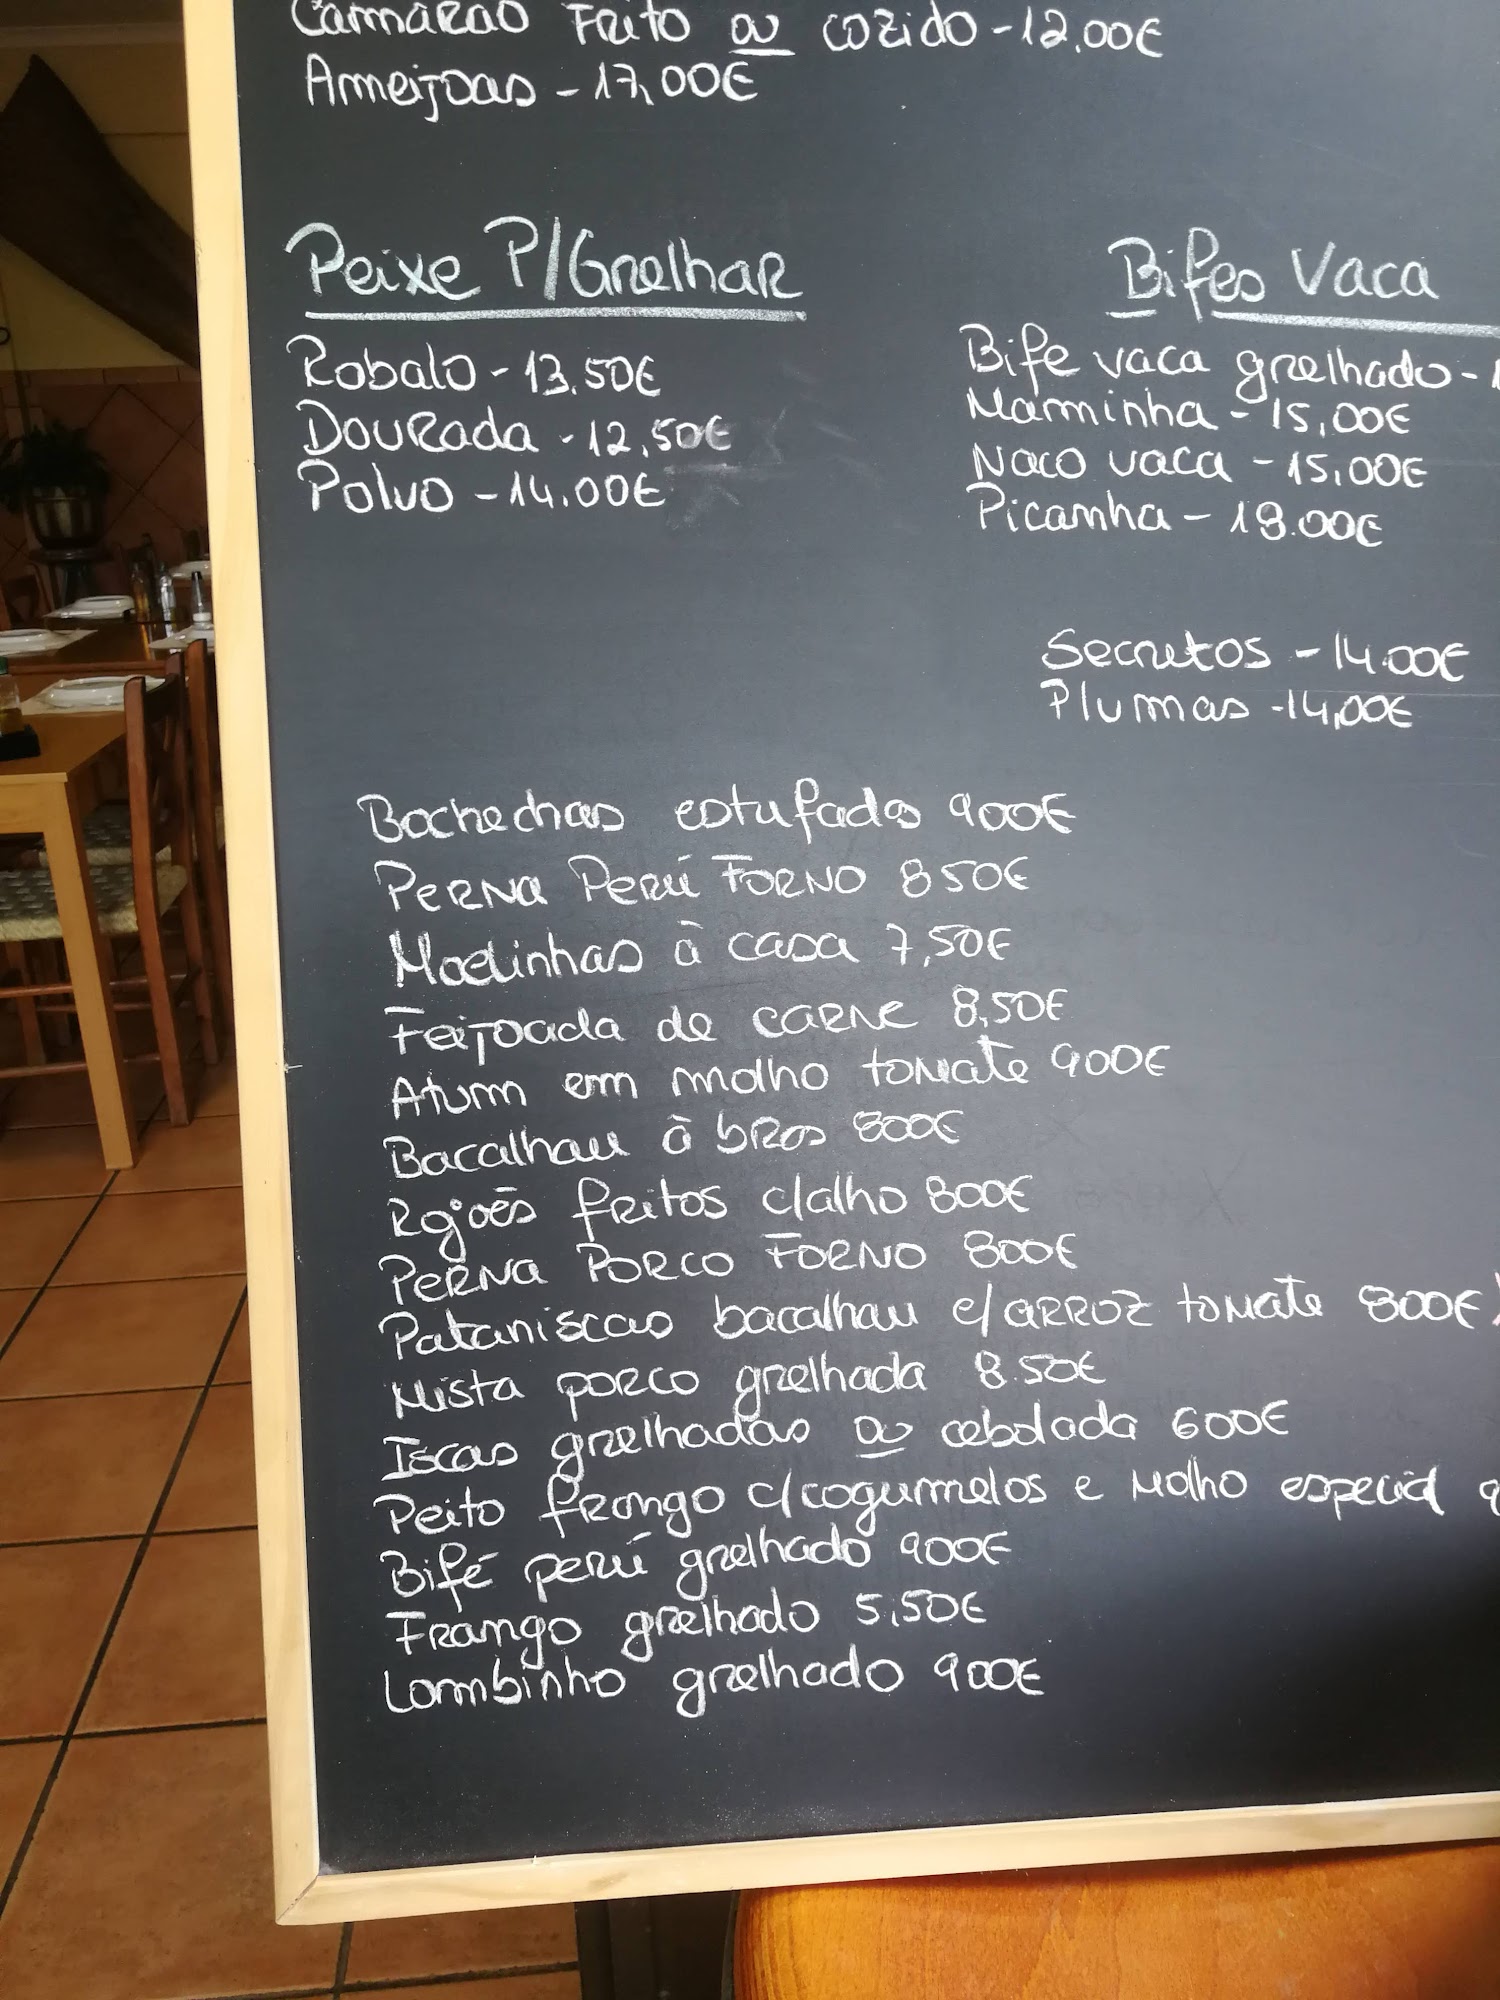 Camarão Frito ou cozido - 12.00€
Ameijoas - 17,00€
Peixe P/Grelhar
Robalo - 13.50€
Dourada - 12,50€
Polvo - 14.00€
Bifes Vaca
Bife vaca grelhado -
Maminha - 15,00€
Naco vaca - 15,00€
Picanha - 18.00€
Secretos - 14.00€
Plumas - 14,00€
Bochechas estufadas 900€
Perna Perú Forno 850€
Moelinhas à casa 7,50€
Feijoada de carne 8,50€
Atum em molho tomate 900€
Bacalhau à bras 800€
Rojões fritos c/alho 800€
Perna Porco Forno 800€
Pataniscas bacalhau c/arroz tomate 800€
Mista porco grelhada 8.50€
Iscas grelhadas ou cebolada 600€
Peito frango c/cogumelos e molho especial
Bife perú grelhado 900€
Frango grelhado 5,50€
Lombinho grelhado 900€